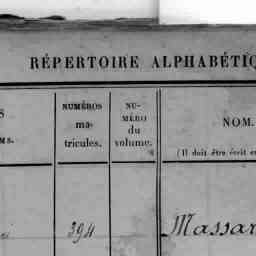 RÉPERTOIRE ALPHABÉTIQ
NUMÉROS
ma-
tricules.
NU-
MÉRO
du
volume.
NOM.
(Il doit être écrit e
394
Massar